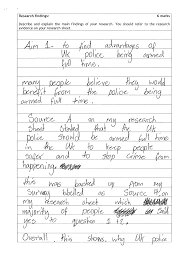 Research findings:
6 marks
Describe and explain the main findings of your research. You should refer to the research
evidence on your research sheet.
Aim 1 - to find advantages of
UK police being armed
full time.
many people believe they would
benefit from the police being
armed full time.
Source A on my research
sheet stated that the UK
police should be armed full time
in the UK to keep people
safer and to stop crime from
happening.
this was backed up from my
survey labelled as Source B in my
research sheet which
majority of people said
yes to question 1 + 2.
Overall, this shows why UK police